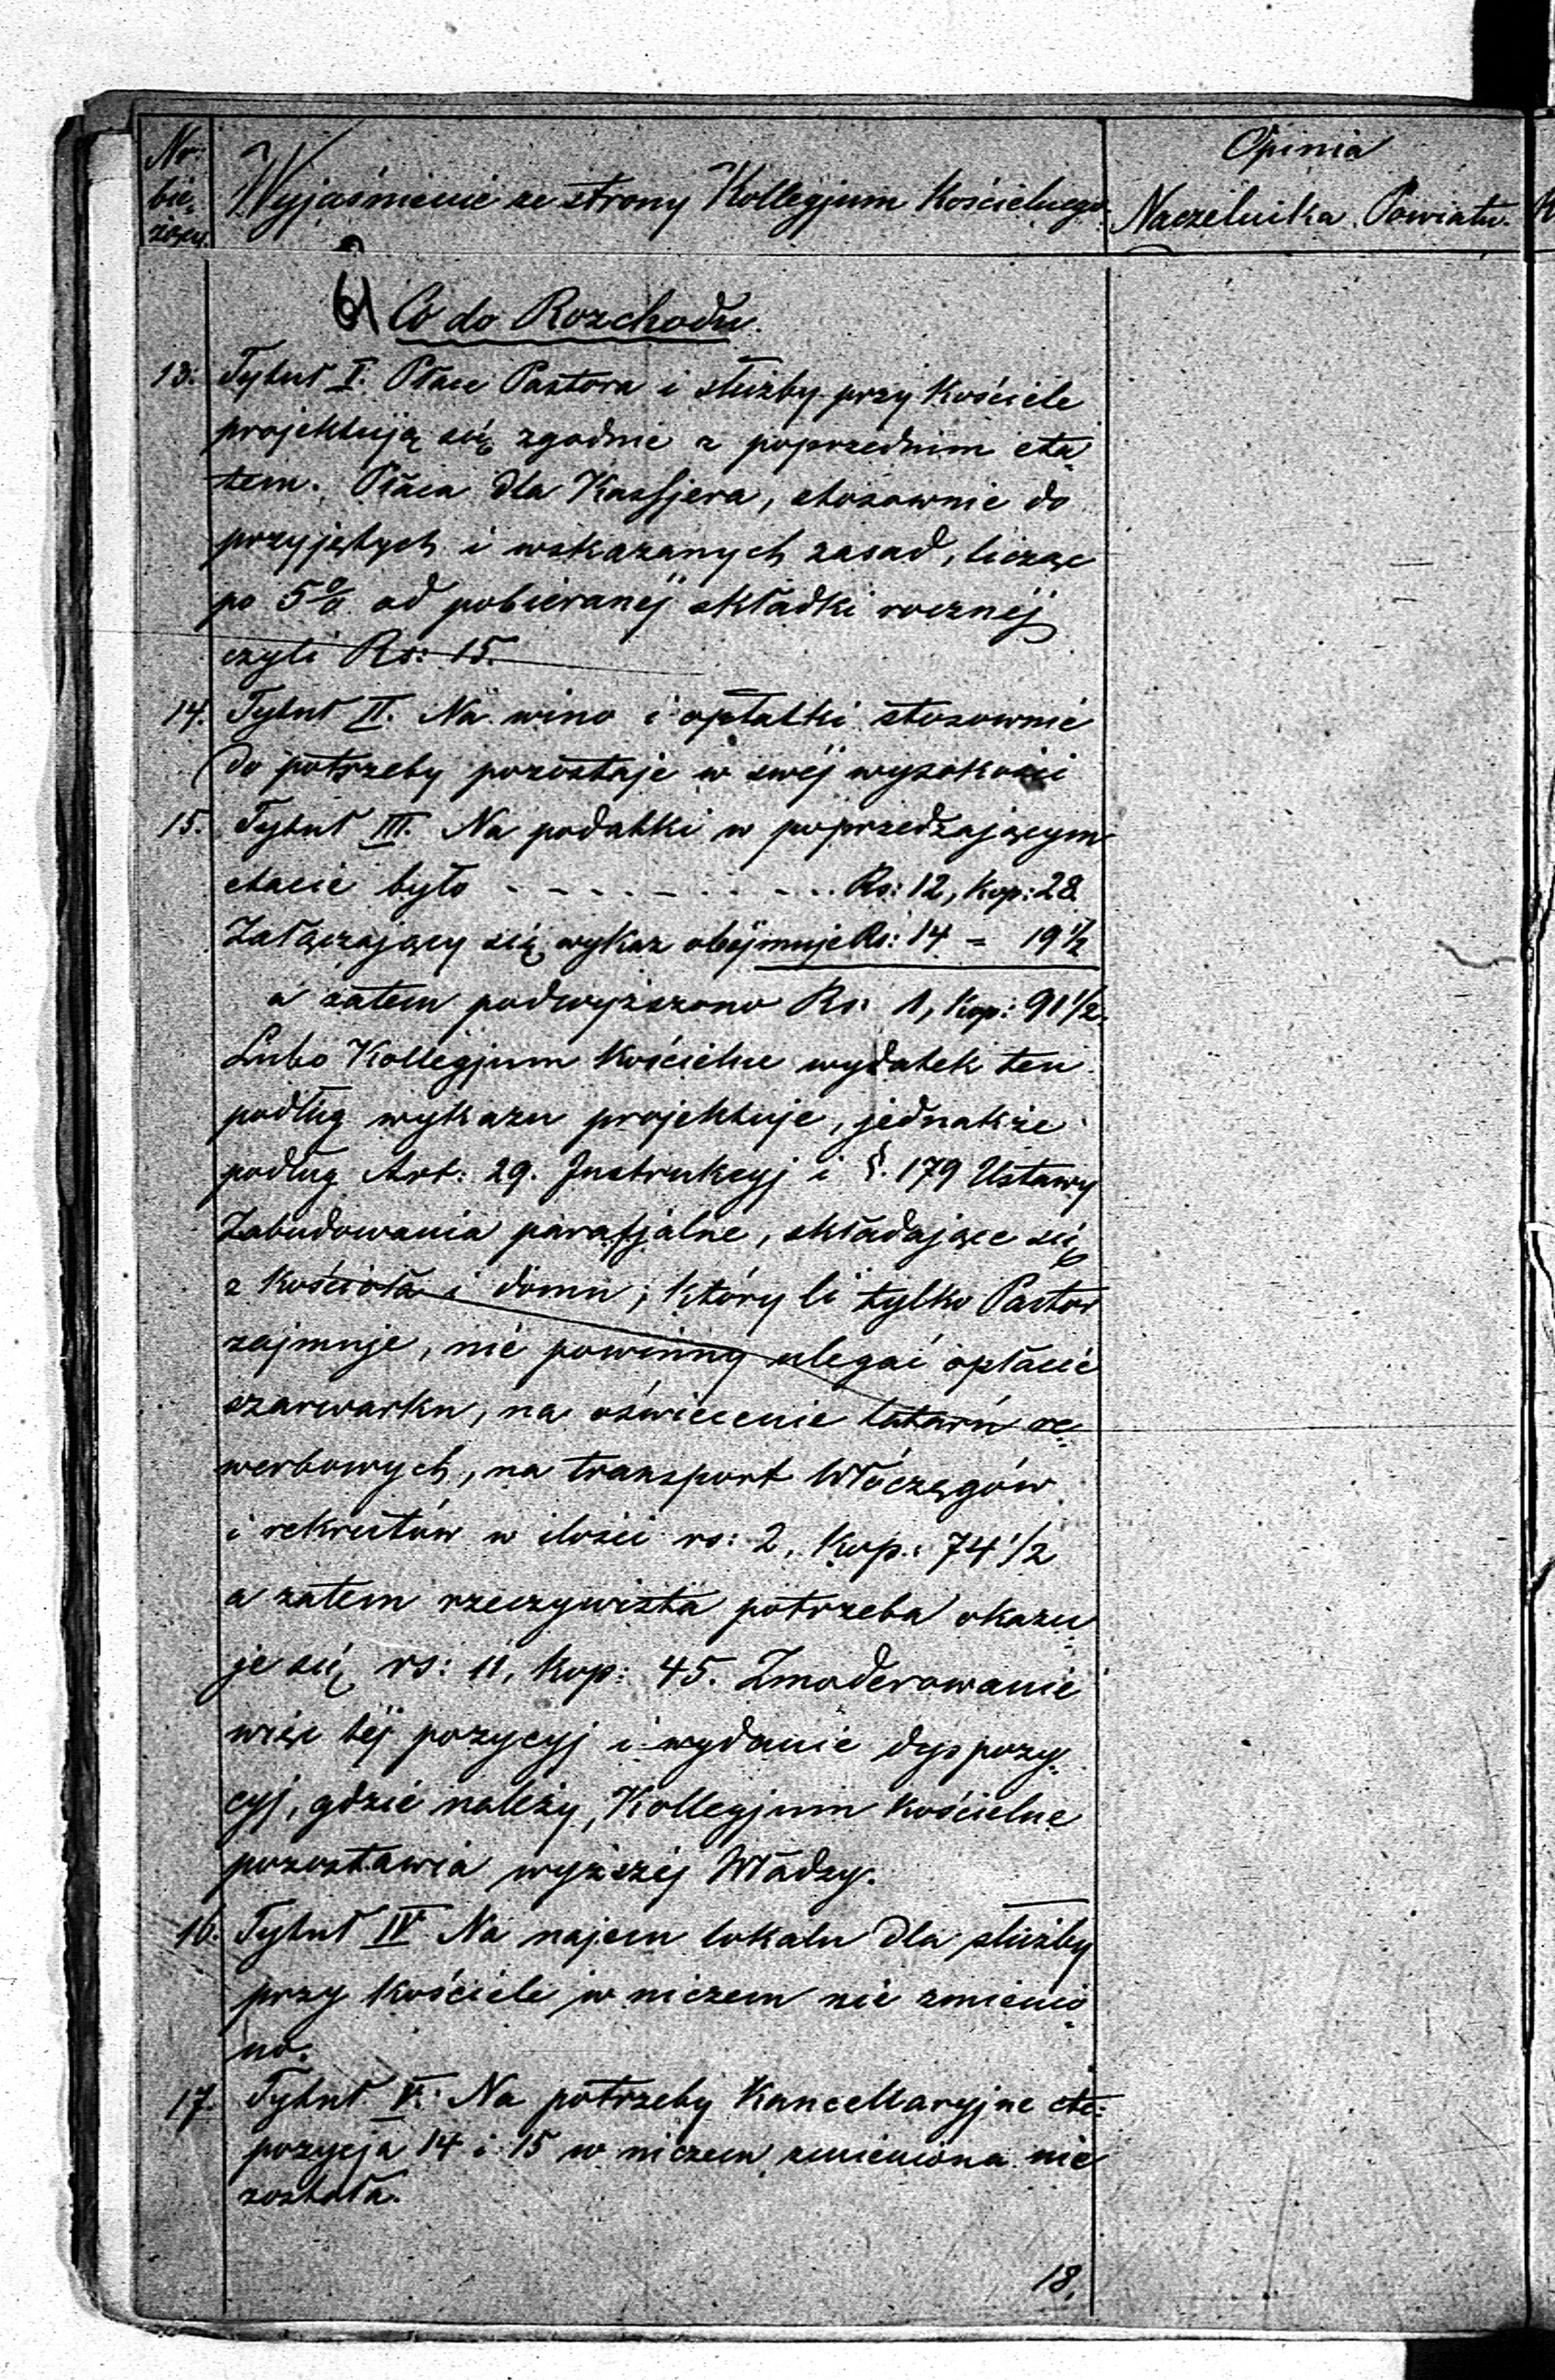 Nr: bie=żący.
Wyjaśnienie ze strony Kollegjum Kościelnego.
Opinia
Naczelnika Powiatu.
b) Co do Rozchodu.
13. Tytuł I. Płace Pastora i służby przy Kościele
projektują się zgodnie z poprzednim eta=
tem. Płaca dla Kassjera, stosownie do
przyjętych i wskazanych zasad, licząc
po 5% od pobieranéj składki rocznéj
czyli Rs: 15.
14. Tytuł II. Na wino i opłatki stosownie
do potrzeby pozostaje w swéj wysokości
15. Tytuł III. Na podatki w poprzedzającym
etacie było - - - - - - - - - - Rs: 12, Kop: 28.
Załączający się wykaz obéjmuje Rs: 14 = 19 1/2
a zatem podwyższono Rs: 1, Kop: 91 1/2.
Lubo Kollegjum Kościelne wydatek ten
podług wykazu projektuje, jednakże
podług Art: 29. Instrukcyj i §. 179 Ustawy
Zabudowania parafjalne, składające się
z Kościoła i domu, który li tylko Pastor
zajmuje, nie powinny ulegać opłacie
szarwarku, na oświecenie latarń re=
werbowych, na transport Włóczęgów
i rekrutów w ilości rs: 2, Kop: 74 1/2
a zatem rzeczywista potrzeba okazu=
je się rs: 11, Kop: 45. Zmoderowanie
więc téj pozycyj i wydanie dyspozy=
cyj, gdzie należy, Kollegjum Kościelne
pozostawia wyższéj Władzy.
16. Tytuł IV Na najem lokalu dla służby
przy Kościele w niczem nie zmienio=
no.
17. Tytuł V. Na potrzeby Kancellaryjne etc:
pozycja 14 i 15 w niczem zmieniona nie
została.
18.